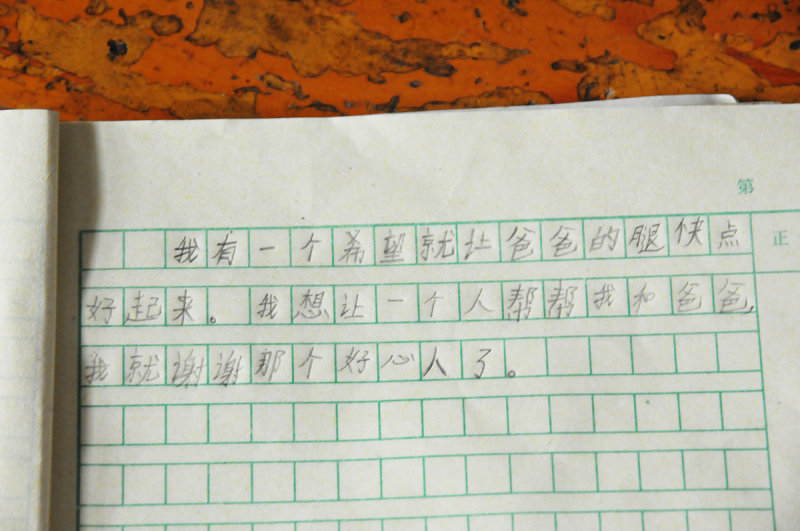 第
正
我有一个希望就让爸爸的腿快点
好起来。我想让一个人帮帮我和爸爸,
我就谢谢那个好心人了。